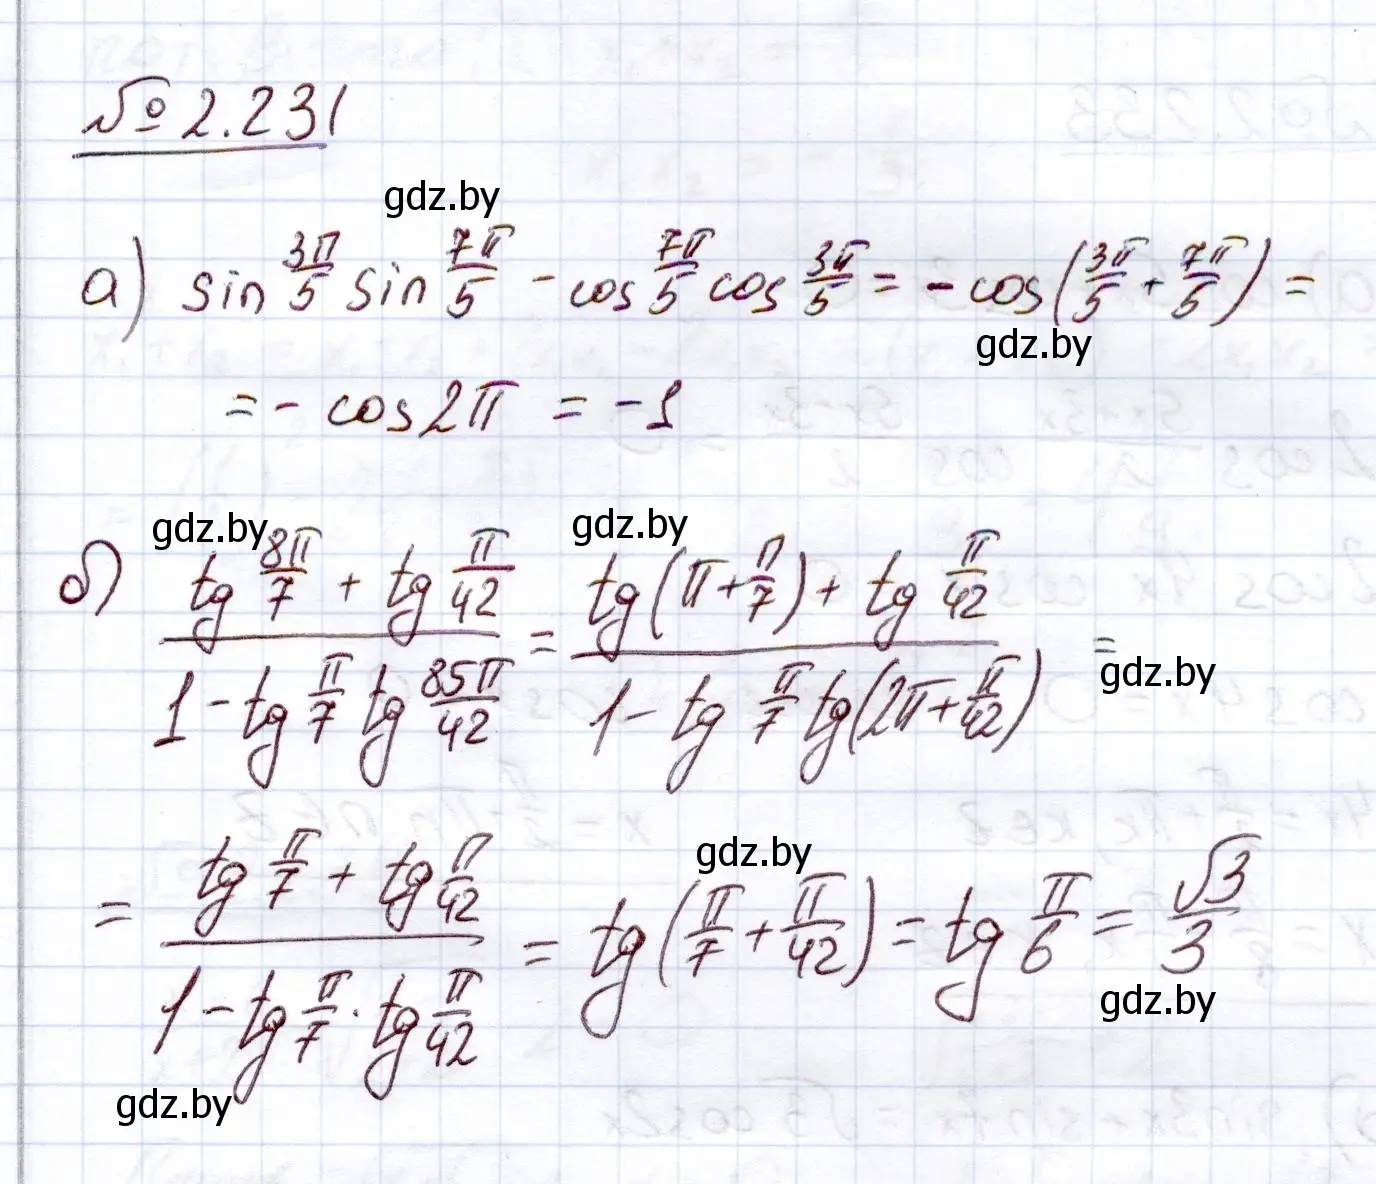 № 2.231
gdz.by
а) sin 3π/5 sin 7π/5 - cos 7π/5 cos 3π/5 = - cos(3π/5 + 7π/5) =
gdz.by
= - cos2π = -1
gdz.by gdz.by
б) (tg 8π/7 + tg π/42)/(1 - tg π/7 tg 85π/42) = (tg(π + π/7) + tg π/42)/(1 - tg π/7 tg(2π + π/42)) =
gdz.by
gdz.by
= (tg π/7 + tg π/42)/(1 - tg π/7 · tg π/42) = tg(π/7 + π/42) = tg π/6 = √3/3
gdz.by
gdz.by